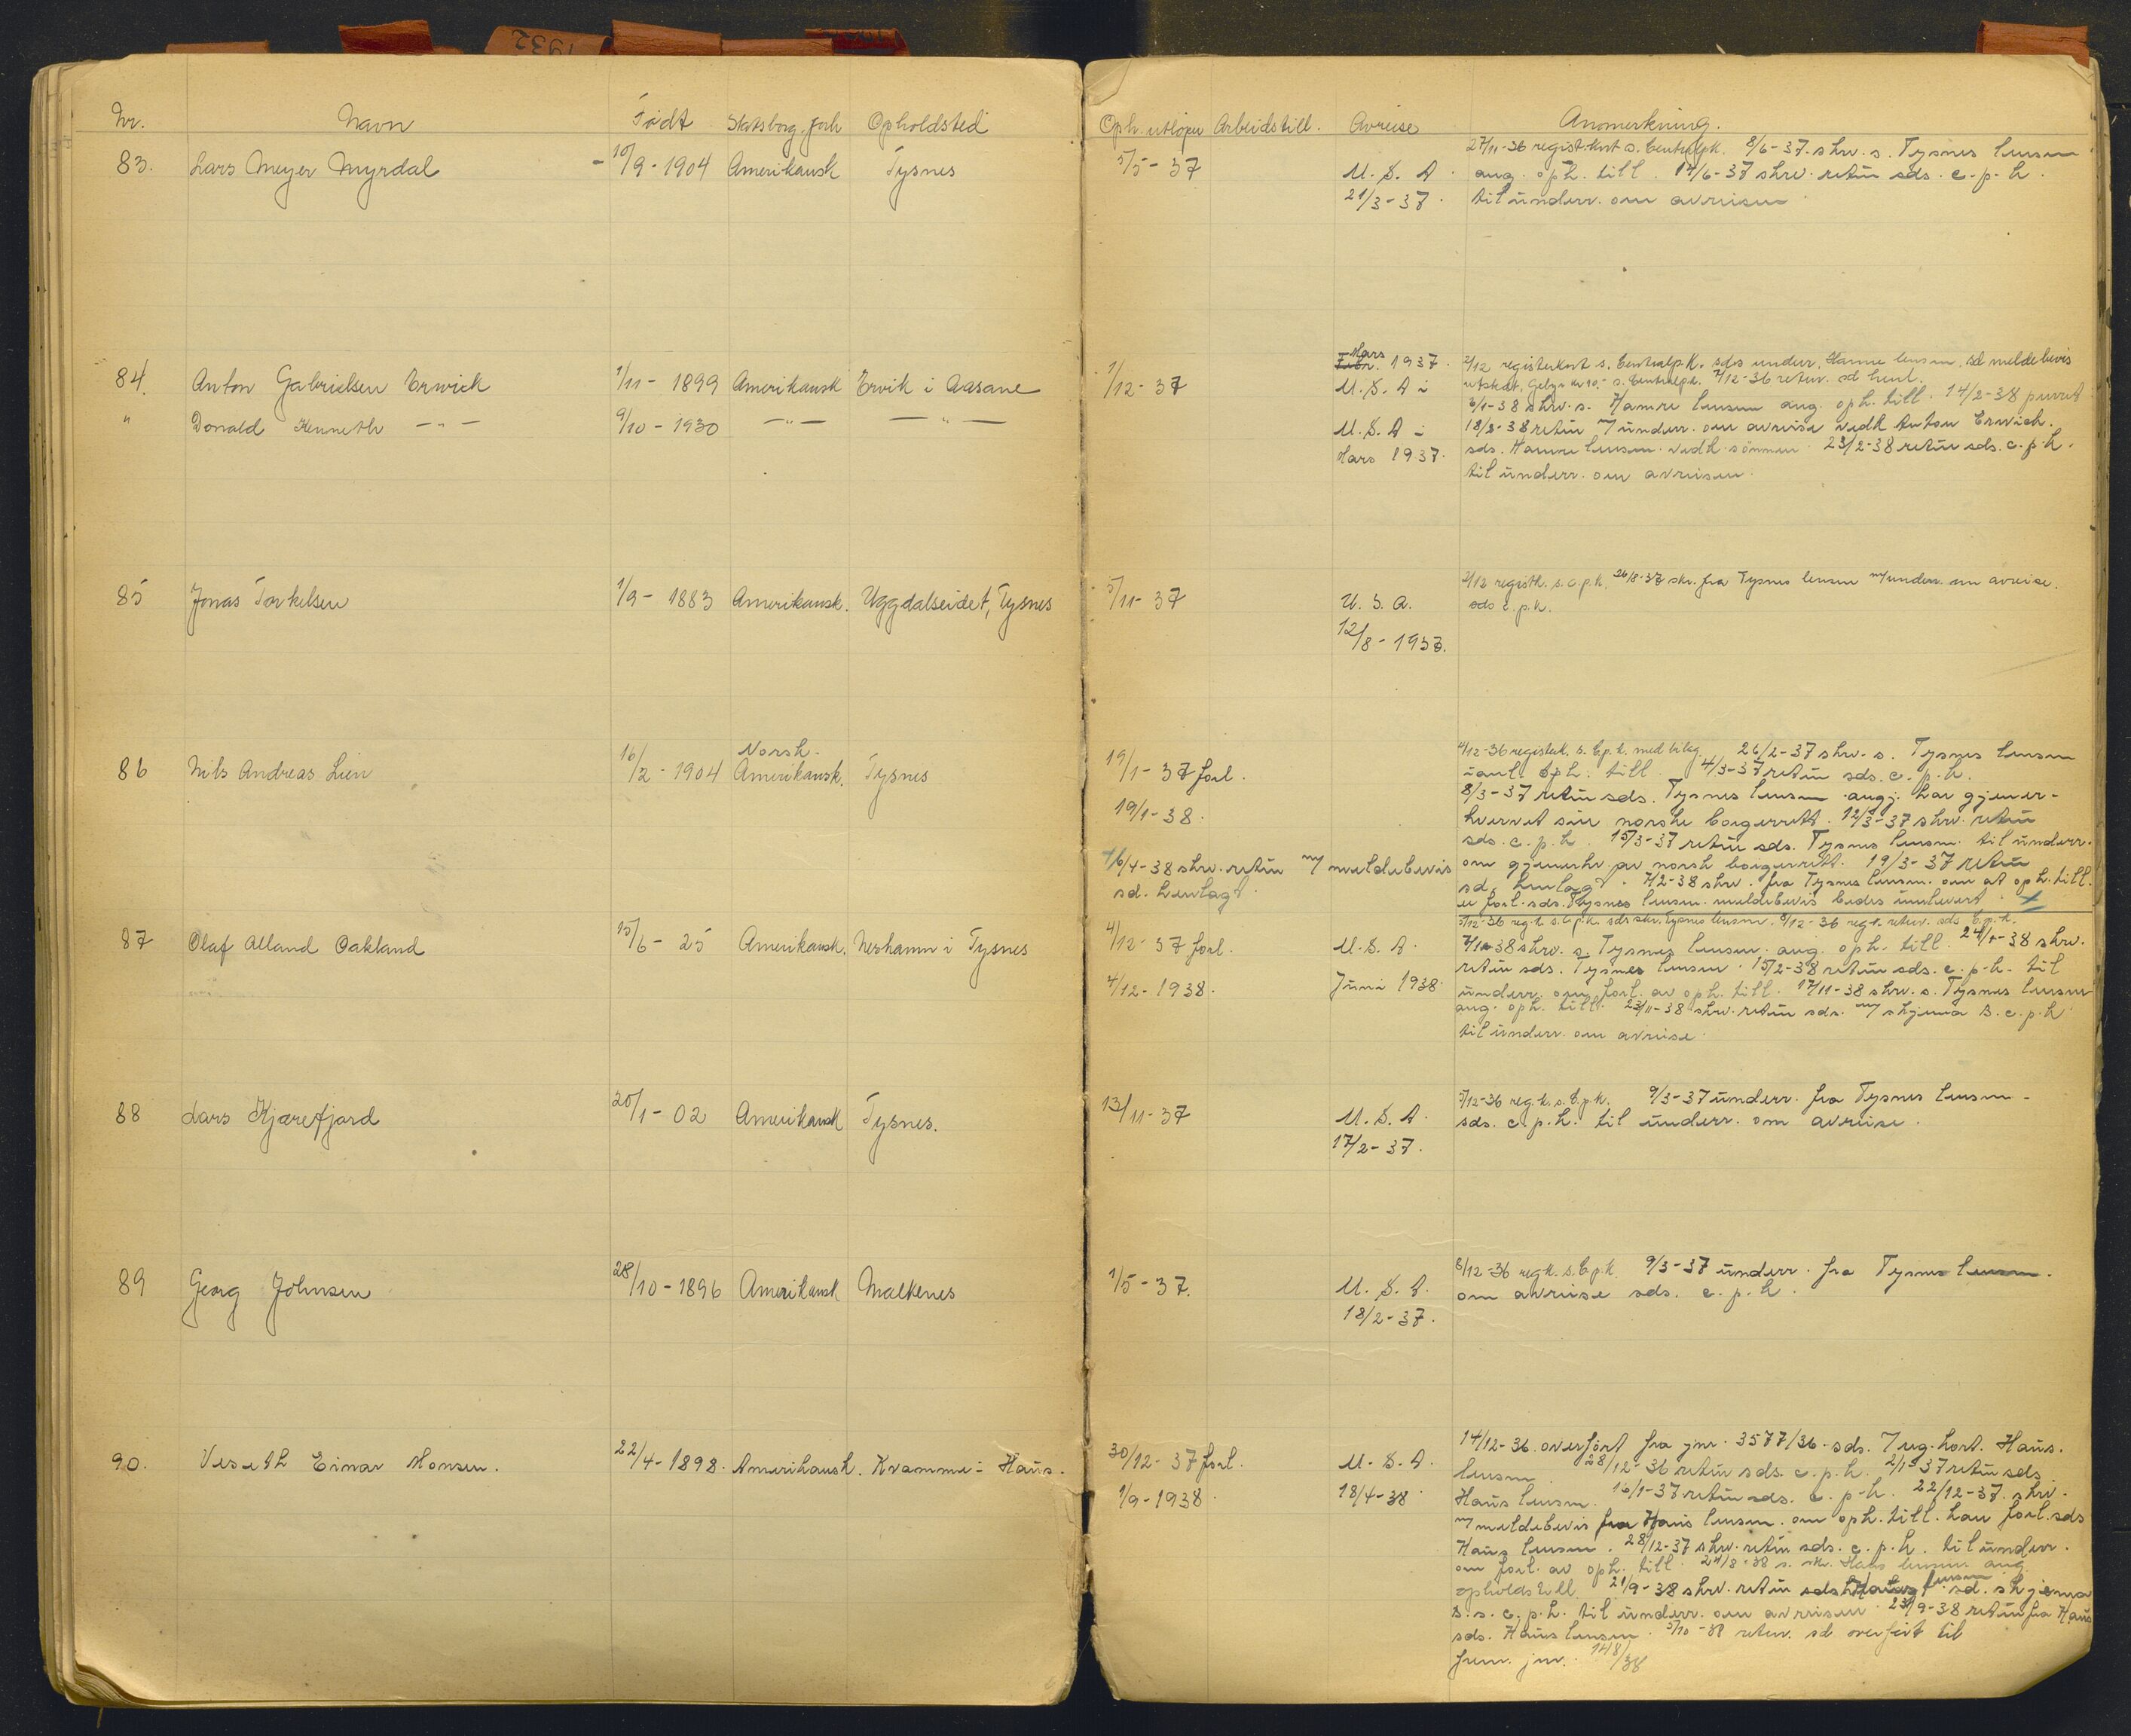 1932
Nr. Navn Født Statsborg. forh Opholdsted Oph. utløper Arbeidstill. Avreise Anmerkning.
83. Lars Meyer Myrdal - 10/9 - 1904 Amerikansk Tysnes 5/5 - 37 U.S.A. 21/3 - 37.
27/11-36 regist.kort s. Centralpk. 8/6-37. skrv. s. Tysnes lensm
ang. oph. till. 14/6-37 skrv. retur sds. c.p.k.
til underr. om avreisen
84. Anton Gabrielsen Erwick 1/11 - 1899 Amerikansk Ervik i Aasane 1/12 - 37 Febr. Mars 1937. U.S.A i
" Donald Kenneth — " — 9/10 - 1930 — " — — " — U.S.A i Mars 1937.
2/12 registerkort s. Centralp.k. sds underr. Hamre lensm. sd meldebevis
utstedt. Gebyr kr 10,- s. Centralp.k. 7/12-36 retur. sd henl.
6/1-38 skrv. s. Hamre lensm ang. oph. till. 14/2-38 purret
18/2-38 retur m/ underr. om avreise vedk Anton Erwick.
sds. Hamre lensm. vedk. sønnen. 23/2-38 retur sds. c.p.k.
til underr. om avreisen.
85 Jonas Torkelsen 1/9 - 1883 Amerikansk. Uggdalseidet, Tysnes 5/11 - 37 U.S.A. 12/8 - 1937.
2/12 registk. s.c.p.k. 26/8-37 skr. fra Tysnes lensm m/underr. om avreise.
sds c.p.k.
86 Nils Andreas Lien 16/2 - 1904 Norsk-Amerikansk. Tysnes 19/1 - 37 forl. 19/1 - 38.
16/4-38 skrv. retur m/ meldebevis
sd. henlagt.
4/12-36 registerk. s. C.p.k. med bilag. 26/2-37 skrv. s. Tysnes lensm
oph. till. 4/3-37 retur sds. c.p.k.
8/3-37 retur sds. Tysnes lensm. angj. har gjener-
hvervet sin norske borgerrett. 12/3-37 skrv. retur
sds. c.p.k. 15/3-37 retur sds. Tysnes lensm. til underr.
om gjenerhv. av norsk borgerrett. 19/3-37 retur
sd. henlagt. 7/2-38 skrv. fra Tysnes lensm. om at oph. till.
er forl. sds. Tysnes lensm. meldebevis bedes innlevert. x
87 Olaf Alland Oakland 15/6 - 25 Amerikansk. Neshamn i Tysnes 4/12 - 37 forl. 4/12 - 1938. U.S.A. Juni 1938.
5/12-36 reg.k. s.C.p.k. sds skr. Tysnes lensm. 8/12-36 reg.k. retur. sds C.p.k.
7/1-38 skrv. s. Tysnes lensm. ang. oph. till. 24/1-38 skrv.
retur sds. Tysnes lensm. 15/2-38 retur sds. c.p.k. til
underr. om forl. av oph. till. 17/11-38 skrv. s. Tysnes lensm
ang. oph. till. 23/11-38 skrv. retur sds. m/ skjema B. c.p.k
til underr. om avreise.
88 Lars Kjærefjord 20/1 - 02 Amerikansk Tysnes. 13/11 - 37 U.S.A. 17/2 - 37.
5/12-36 reg.k. s.C.p.k. 9/3-37 underr. fra Tysnes lensm -
sds. c.p.k. til underr. om avreise.
89 Georg Johnsen 28/10 - 1896 Amerikansk Malkenes 1/5 - 37. U.S.A. 18/2 - 37.
8/12-36 reg.k. s.C.p.k. 9/3-37 underr. fra Tysnes lensm.
om avreise sds. c.p.k.
90. Veseth Einar Monsen. 22/4 - 1898. Amerikansk. Kramme i Haus. 30/12 - 37 forl. 1/9 - 1938. U.S.A. 18/4-38
14/12-36. overført fra jnr. 3577/36. sds. reg. kort. Haus.
lensm. 28/12-36 retur sds. c.p.k. 2/1-37 retur sds.
Haus lensm. 16/1-37 retur sds. c.p.k. 22/12-37. skrv.
m/ meldebevis fra Haus lensm. om oph. till. kan forl. sds
Haus lensm. 28/12-37 skrv. retur sds. c.p.k. til underr.
om forl. av oph. till. 24/8-38 s. skr. Haus lensm ang.
opholdstill 21/9-38 skrv. retur sds lensm. sd. skjema
B. s. c.p.k. til underr. om avreisen. 23/9-38 retur fra Haus
sds. Haus lensm. 5/10-38 retur. sd. overført til
frem. jnr. 148/38